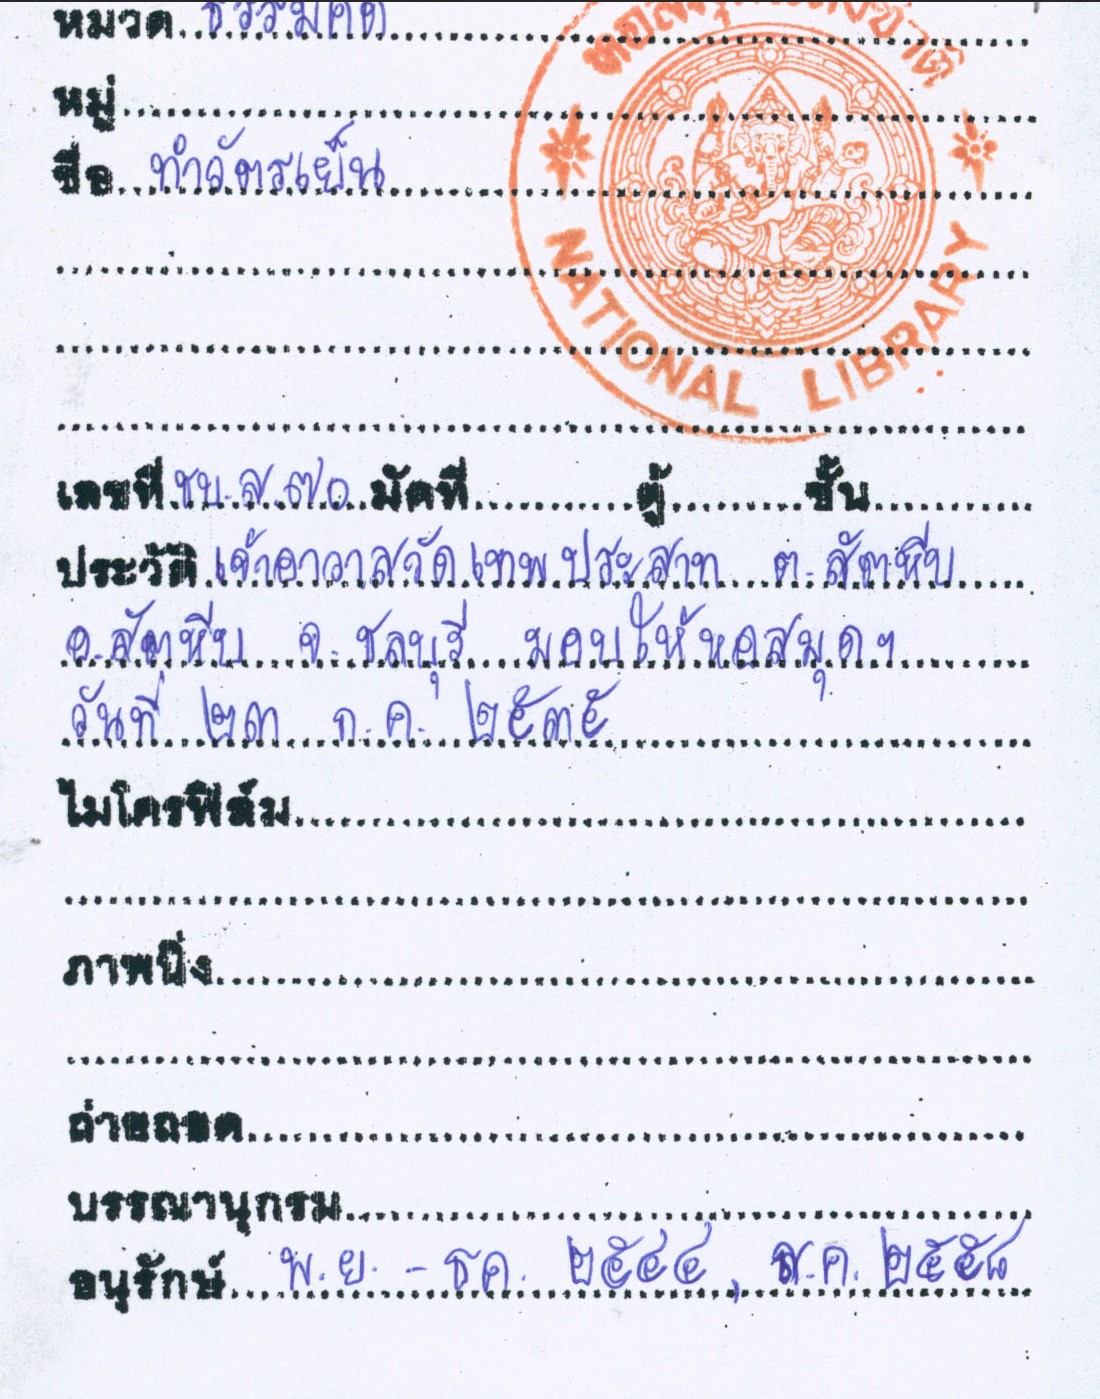 หมวด ธรรมคดี
หอสมุดแห่งชาติ
หมู่
ชื่อ ทำวัตรเย็น
NATIONAL LIBRARY
เลขที่ ชบ.ส.๗๐ มัดที่ ตู้ ชั้น
ประวัติ เจ้าอาวาสวัดเทพประสาท ต.สัตหีบ
อ.สัตหีบ จ.ชลบุรี มอบให้หอสมุดฯ
วันที่ ๒๓ ก.ค. ๒๕๓๕
ไมโครฟิล์ม
ภาพนิ่ง
ถ่ายถอด
บรรณานุกรม
อนุรักษ์ พ.ย. - ธค. ๒๕๔๔, ส.ค. ๒๕๕๘